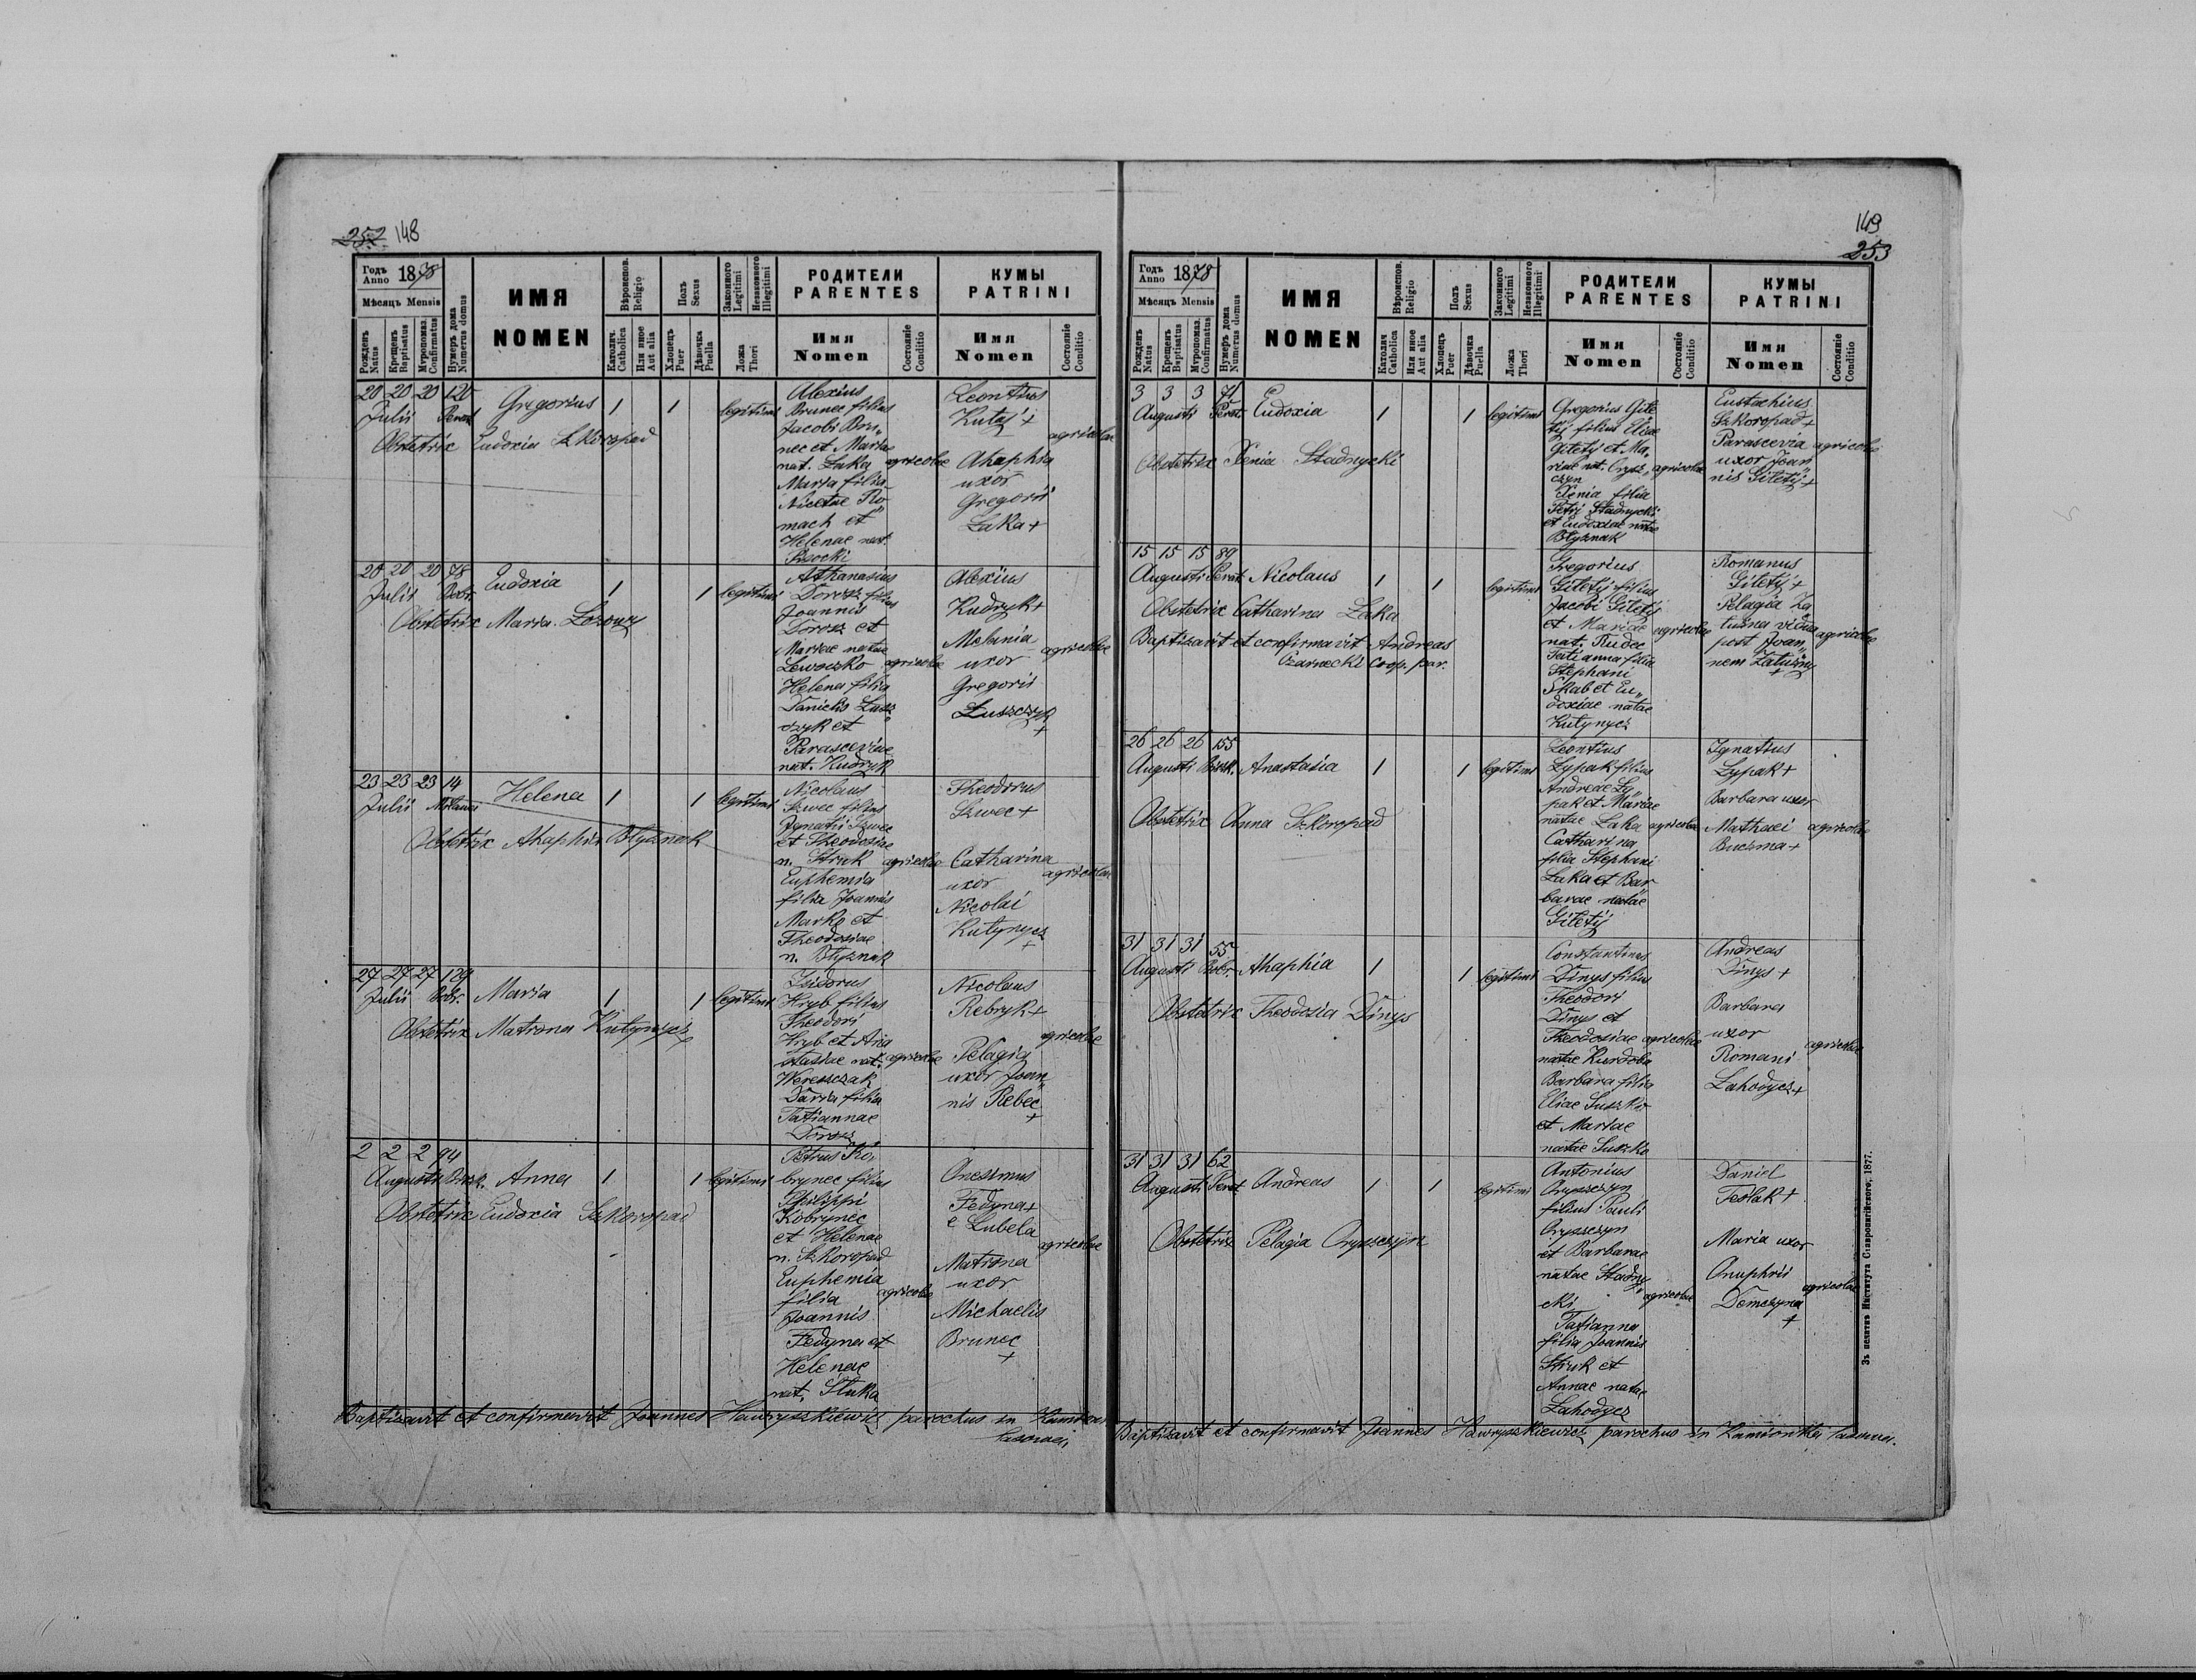 252 148
Годъ Anno 1878
Мѣсяцъ Mensis
Рожденъ Natus
Крещенъ Baptisatus
Мѵропомаз. Confirmatus
Нумеръ дома Numerus domus
ИМЯ
NOMEN
Вѣроисповѣд. Religio
Католич Catholica
Или иное Aut alia
Полъ Sexus
Хлопецъ Puer
Дѣвочка Puella
Законного Legitimi
Незаконного Illegitimi
Ложа Thori
РОДИТЕЛИ
PARENTES
Имя Nomen
Состояніе Conditio
КУМЫ
PATRINI
Имя Nomen
Состояніе Conditio
20 20 20 120
Julii
Gregorius 1 1 legitimi
Obstetrix Eudoxia Szkoropad
Alexius
Brunec filius
Jacobi Bru„
nec et Mariae
nat. Łaka agricolae
Maria filia
Nicetae
mach et
Helenae nat.
Leontius
Kutyj +
agricolae
Ahaphia
uxor
Gregorii
Łaka +
20 20 20 78
Julii
Eudoxia 1 1 legitimi
Obstetrix Maria
Athanasius
Dorosz filius
Joannis
Dorosz et
Mariae natae
Lewoczko agricolae
Helena filia
Danielis Łusz„
czyk et
Parasceviae
nat. Kudryk
Alexius
Kudryk +
Melania
uxor agricolae
Gregorii
Łuszczyk
+
23 23 23 14
Julii
Helena 1 1 legitimi
Obstetrix Ahaphia Błyznak
Nicolaus
Szwec filius
Ignatii Szwec
et Theodosiae
n. Struk agricolae
Euphemia
filia Joannis
Marko et
Theodosiae
n. Błyznak
Theodorus
Szwec +
Catharina
uxor agricolae
Nicolai
Kutynycz
+
27 27 27 129
Julii
Maria 1 1 legitimi
Obstetrix Matrona Kutynycz
Isidorus
Hryb filius
Theodori
Hryb et Ana„
stasiae nat. agricolae
Wereszczak
Daria filia
Tatiannae
Dorosz
Nicolaus
Rebryk +
agricolae
Pelagia
uxor Joan„
nis Rebec
+
2 2 2 94
Augusti
Anna 1 1 legitimi
Obstetrix Eudoxia Szkoropad
Petrus Ko„
brynec filius
Philippi
Kobrynec
et Helenae
n. Szkoropad
Euphemia
filia agricolae
Joannis
Fedyna et
Helenae
nat. Słuka
Onesimus
Fedyna +
e Lubela
agricolae
Matrona
uxor
Michaelis
Brunec
+
Baptisavit et confirmavit Joannes Hawryszkiewicz parochus in
149
253
Годъ Anno 1878
Мѣсяцъ Mensis
Рожденъ Natus
Крещенъ Baptisatus
Мѵропомаз. Confirmatus
Нумеръ дома Numerus domus
ИМЯ
NOMEN
Вѣроисповѣд. Religio
Католич Catholica
Или иное Aut alia
Полъ Sexus
Хлопецъ Puer
Дѣвочка Puella
Законного Legitimi
Незаконного Illegitimi
Ложа Thori
РОДИТЕЛИ
PARENTES
Имя Nomen
Состояніе Conditio
КУМЫ
PATRINI
Имя Nomen
Состояніе Conditio
3 3 3 71
Augusti
Eudoxia 1 1 legitimi
Obstetrix Xenia Stadnycki
Gregorius Gile„
tij filius Eliae
Giletij et Ma„
riae nat. Orysz„ agricolae
czyn
Xenia filia
Petri Stadnycki
et Eudoxiae natae
Błyznak
Eustachius
Szkoropad +
Parascevia agricolae
uxor Joan„
nis Giletij +
15 15 15 89
Augusti
Nicolaus 1 1 legitimi
Obstetrix Catharina Łaka
Baptisavit et confirmavit Andreas
Czarnecki Coop. par.
Gregorius
Giletij filius
Jacobi Giletij
et Mariae agricolae
nat. Dudec
Tatianna filia
Stephani
Skab et Eu„
doxiae natae
Kutynycz
Romanus
Giletij +
Pelagia Za„
tuszna vidua agricolae
post Joan„
nem
+
26 26 26 155
Augusti
Anastasia 1 1 legitimi
Obstetrix Anna Szkoropad
Leontius
Łypak filius
Andreae Ły„
pak et Mariae
natae Łaka agricolae
Catharina
filia Stephani
Łaka et Bar„
barae natae
Giletij
Ignatius
Łypak +
Barbara uxor
Mathaei agricolae
Buczma +
31 31 31 55
Augusti
Ahaphia 1 1 legitimi
Obstetrix Theodosia Dinys
Constantinus
Dinys filius
Theodori
Dinys et
Theodosiae agricolae
natae Kurdoba
Barbara filia
Eliae Suszko
et Mariae
natae Suszko
Andreas
Dinys +
Barbara
uxor agricolae
Romani
Lahodycz +
31 31 31 62
Augusti
Andreas 1 1 legitimi
Obstetrix Pelagia Oryszczyn
Antonius
Oryszczyn
filius Pauli
Oryszczyn
et Barbarae
natae Stadny„
cki agricolae
Tatianna
filia Joannis
Struk et
Annae natae
Lahodycz
Daniel
Teslak +
Maria uxor
Onuphrii agricolae
Demczyna
+
Baptisavit et confirmavit Joannes Hawryszkiewicz parochus in Kamionka
Зъ печатнѣ Института Ставропигійского, 1877.